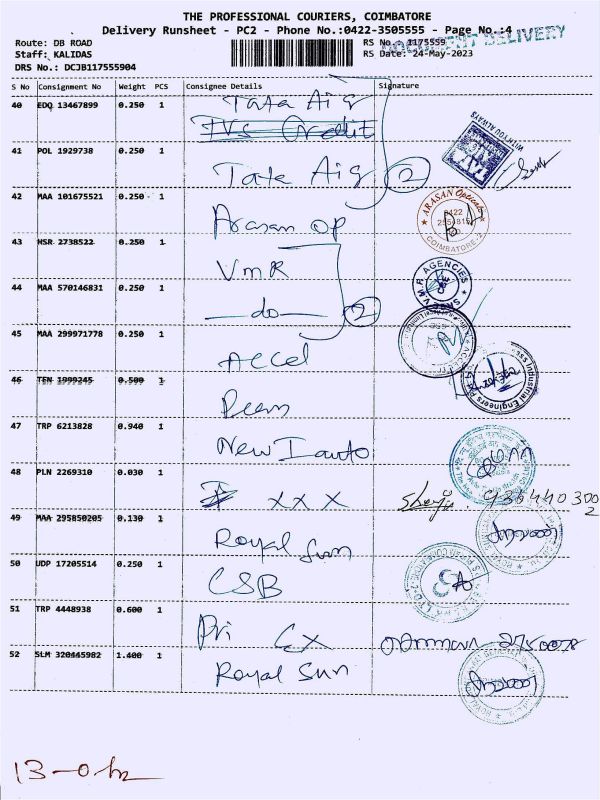 THE PROFESSIONAL COURIERS, COIMBATORE
Delivery Runsheet - PC2 - Phone No.:0422-3505555 - Page No.:4
DOCUMENT DELIVERY
Route: DB ROAD
RS No.: 1175559
Staff: KALIDAS
RS Date: 24-May-2023
DRS No.: DCJB117555904
S No Consignment No Weight PCS Consignee Details Signature
40 EDQ 13467899 0.250 1 Tata Aig
TVS Credit
41 POL 1929738 0.250 1 Tata Aig 2
42 MAA 101675521 0.250 1 Arasan OP
ARASAN Opticals
0422
COIMBATORE-2
43 HSR 2738522 0.250 1 VMR
V.M.R AGENCIES
44 MAA 570146831 0.250 1 do 2
45 MAA 299971778 0.250 1 Accel
46 TEN 1999245 0.500 1
Industrial Engineers
47 TRP 6213828 0.940 1 New I auto
48 PLN 2269310 0.030 1 XXX
49 MAA 295850205 0.130 1 Royal Sun
50 UDP 17205514 0.250 1 CSB
51 TRP 4448938 0.600 1 Pri CX
52 SLM 320445982 1.400 1 Royal Sun